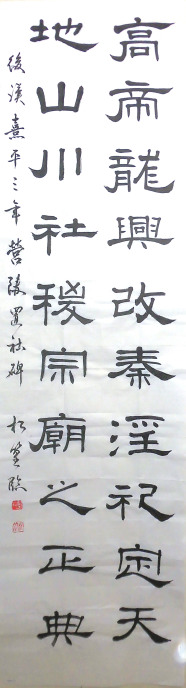 高帝龍興改秦淫祀定天
地山川社稷宗廟之正典
後漢熹平三年營陵置社碑 松篁臨